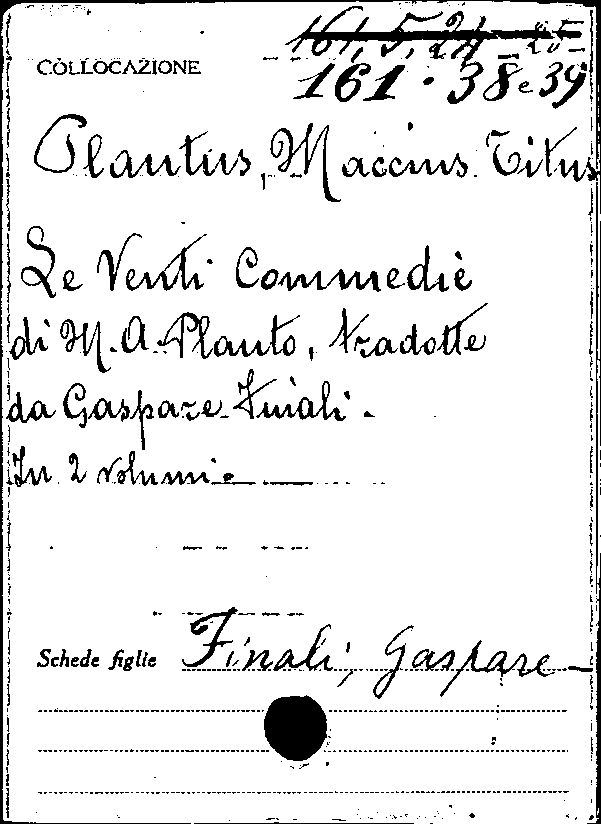 161. 5. 24-25
COLLOCAZIONE
161 · 38 e 39
Plautus, Maccius Titus
Le Venti Commedie
di M. A. Plauto, tradotte
da Gaspare Finali.
In 2 volumi.
Schede figlie Finali, Gaspare